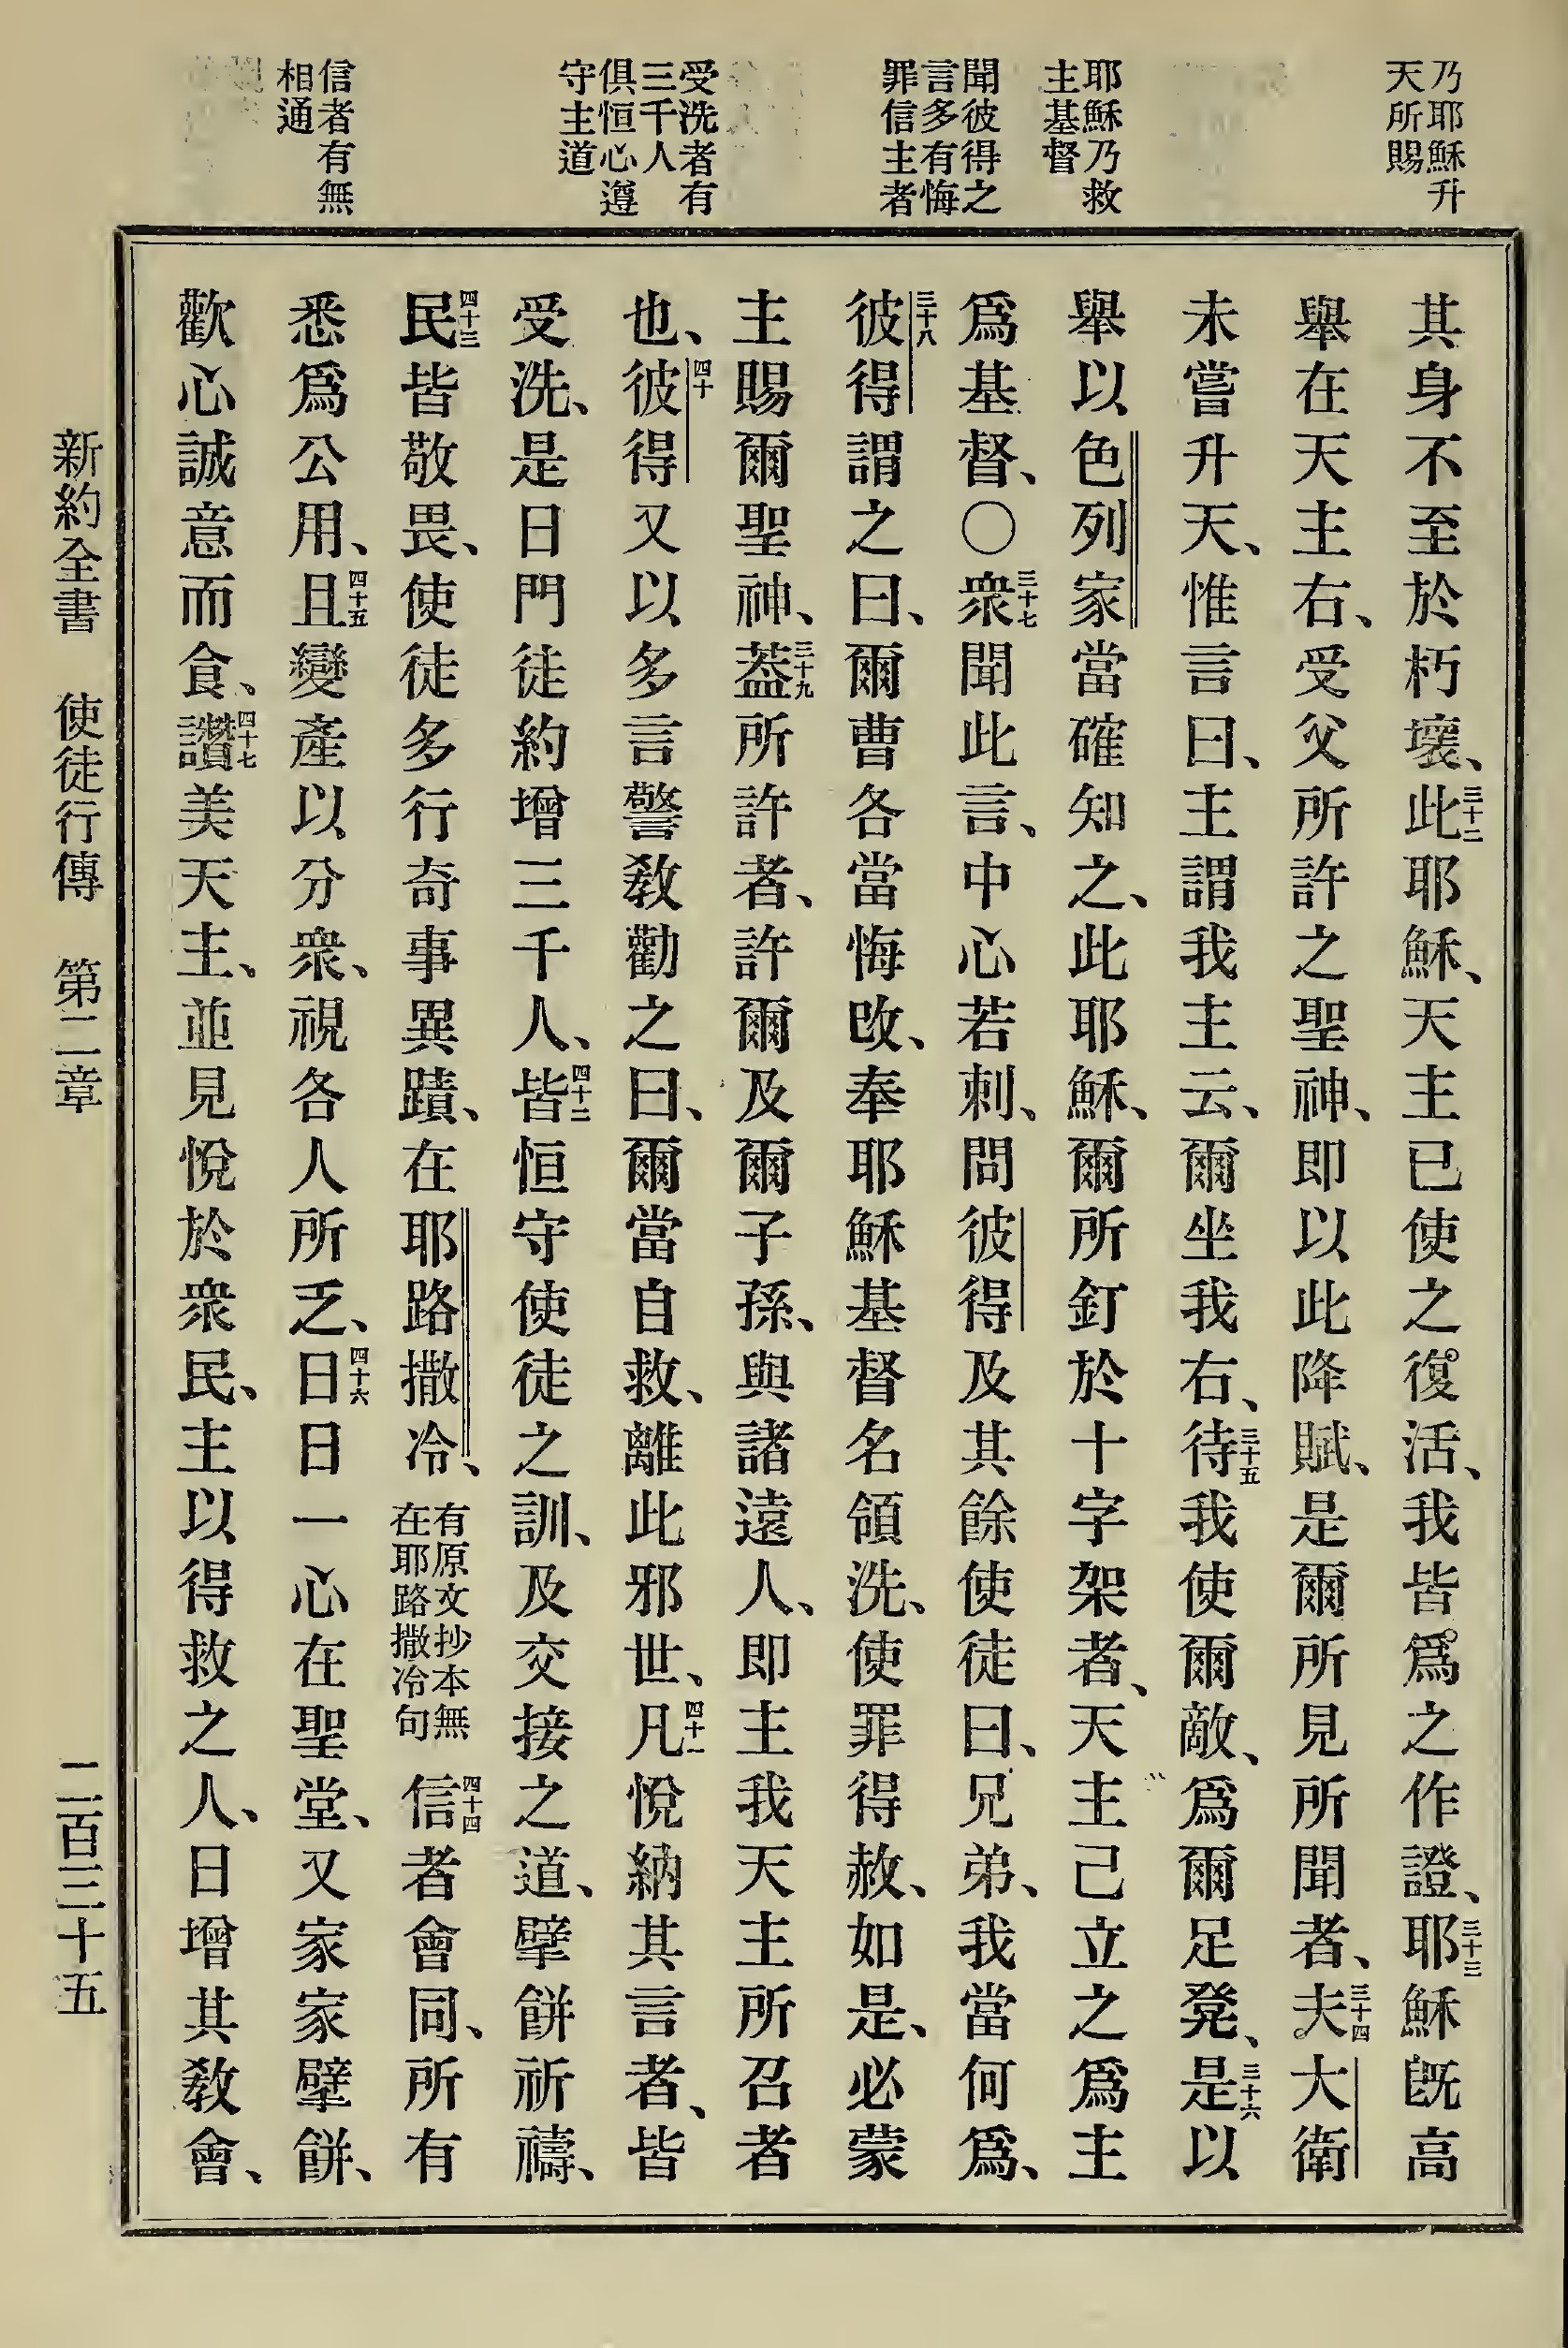 乃耶穌升
天所賜
耶穌乃救
主基督
聞彼得之
言多有悔
罪信主者
受洗者有
三千人
俱恒心遵
守主道
信者有無
相通
其身不至於朽壞、三十二此耶穌、天主已使之復活、我皆爲之作證、三十三耶穌旣高
舉在天主右、受父所許之聖神、即以此降賦、是爾所見所聞者、三十四夫大衛
未嘗升天、惟言曰、主謂我主云、爾坐我右、三十五待我使爾敵、爲爾足凳、三十六是以
舉以色列家當確知之、此耶穌、爾所釘於十字架者、天主己立之爲主
爲基督、○三十七衆聞此言、中心若刺、問彼得及其餘使徒曰、兄弟、我當何爲、
三十八彼得謂之曰、爾曹各當悔改、奉耶穌基督名領洗、使罪得赦、如是、必蒙
主賜爾聖神、三十九蓋所許者、許爾及爾子孫、與諸遠人、即主我天主所召者
也、四十彼得又以多言警敎勸之曰、爾當自救、離此邪世、四十一凡悅納其言者、皆
受洗、是日門徒約增三千人、四十二皆恒守使徒之訓、及交接之道、擘餅祈禱、
四十三民皆敬畏、使徒多行奇事異蹟、在耶路撒冷、有原文抄本無在耶路撒冷句四十四信者會同、所有
悉爲公用、四十五且變產以分衆、視各人所乏、四十六日日一心在聖堂、又家家擘餅、
歡心誠意而食、四十七讚美天主、並見悅於衆民、主以得救之人、日增其敎會、
新約全書 使徒行傳 第二章 二百三十五